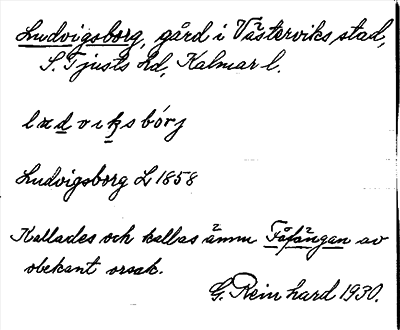 Ludvigsborg, gård i Västerviks stad,
S. Tjusts hd, Kalmar l.
ludviksbórj
Ludvigsborg L 1858
Kallades och kallas ännu Fåfängan av
obekant orsak.
G. Reinhard 1930.